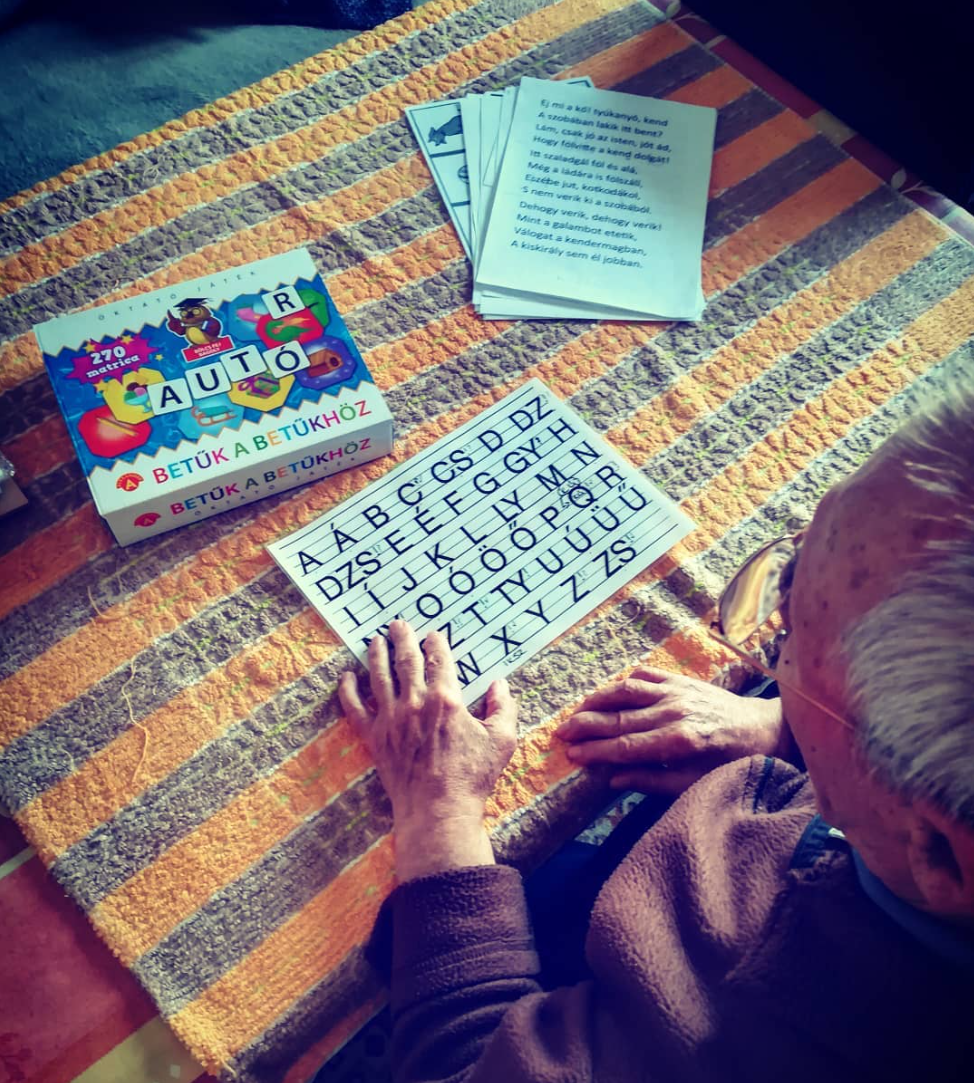 Ej mi a kő! tyúkanyó, kend
A szobában lakik itt bent?
Lám, csak jó az isten, jót ád,
Hogy fölvitte a kend dolgát!
Itt szaladgál föl és alá,
Még a ládára is fölszáll,
Eszébe jut, kotkodákol,
S nem verik ki a szobából.
Dehogy verik, dehogy verik!
Mint a galambot etetik,
Válogat a kendermagban,
A kiskirály sem él jobban.
OKTATÓ JÁTÉK
270
matrica
BÖLCS FEJ
BAGOLY
R
AUTÓ
BETŰK A BETŰKHÖZ
BETŰK A BETŰKHÖZ
OKTATÓ JÁTÉK
A Á B C CS D DZ
DZS E É F G GY H
I Í J K L LY M N
O Ó Ö Ő P Q R
Z T TY U Ú Ü Ű
W X Y Z ZS
IKSZ